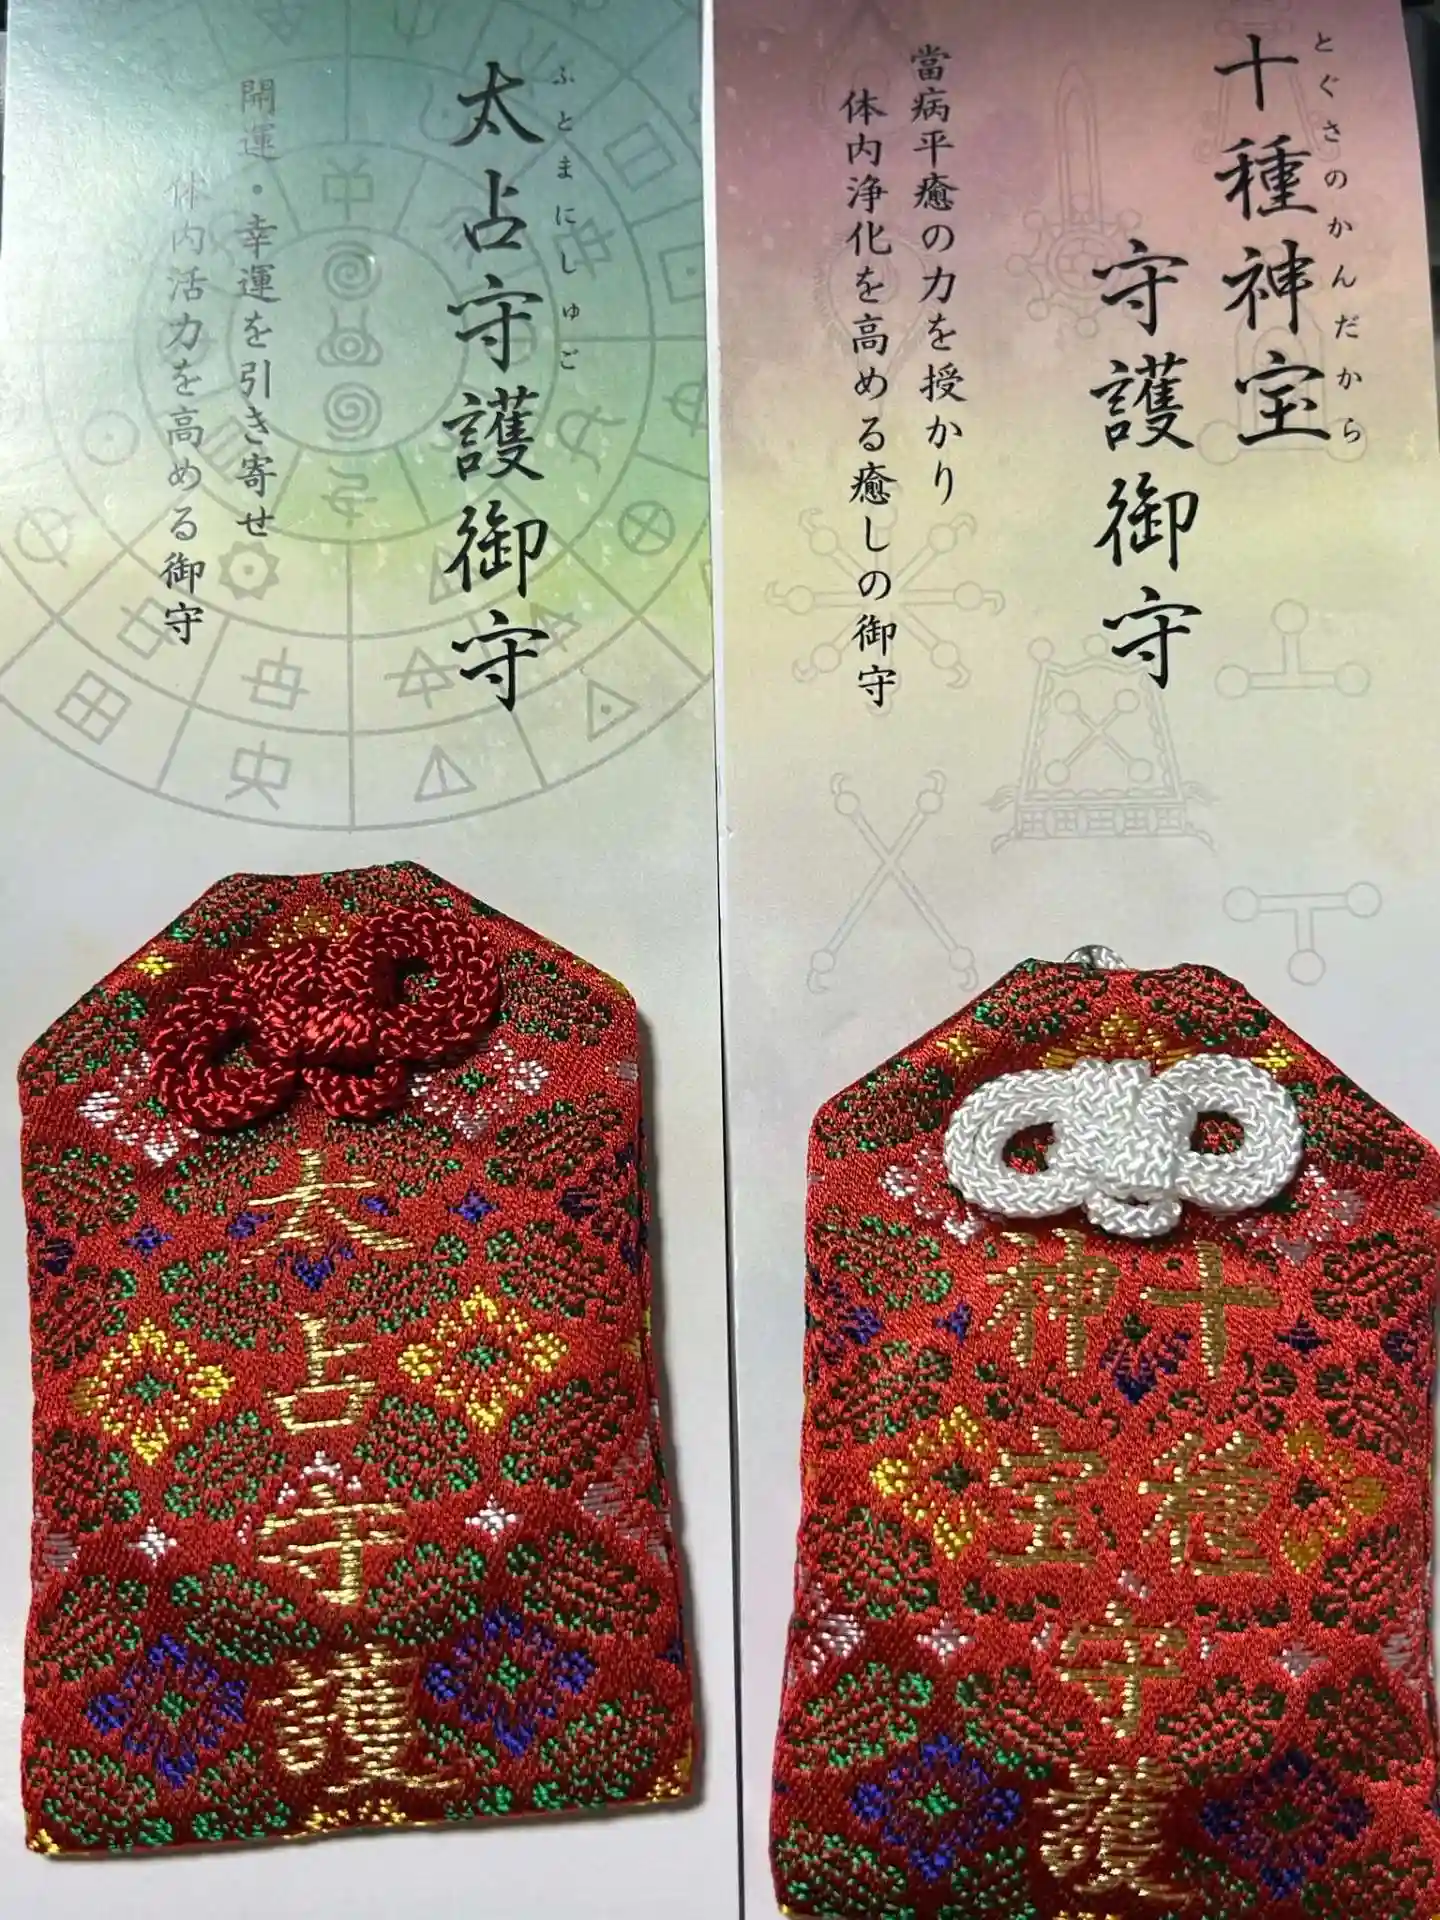 十種神宝
とくさのかんだから
守護御守
當病平癒の力を授かり
体内浄化を高める癒しの御守
太占守護御守
ふとまにしゅご
開運・幸運を引き寄せ
体内活力を高める御守
十種
神宝
守護
太占守護